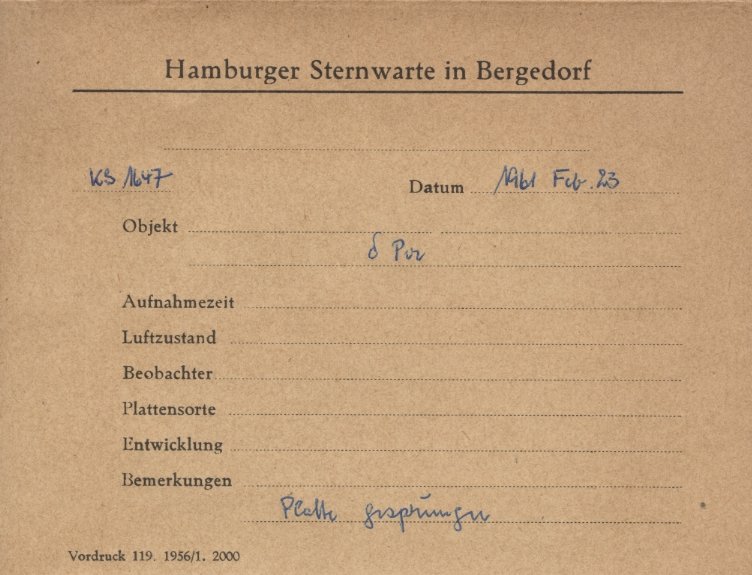 Hamburger Sternwarte in Bergedorf
KS 1647 Datum 1961 Feb. 23
Objekt
δ
Aufnahmezeit
Luftzustand
Beobachter
Plattensorte
Entwicklung
Bemerkungen
Platte gesprungen
Vordruck 119. 1956/1. 2000